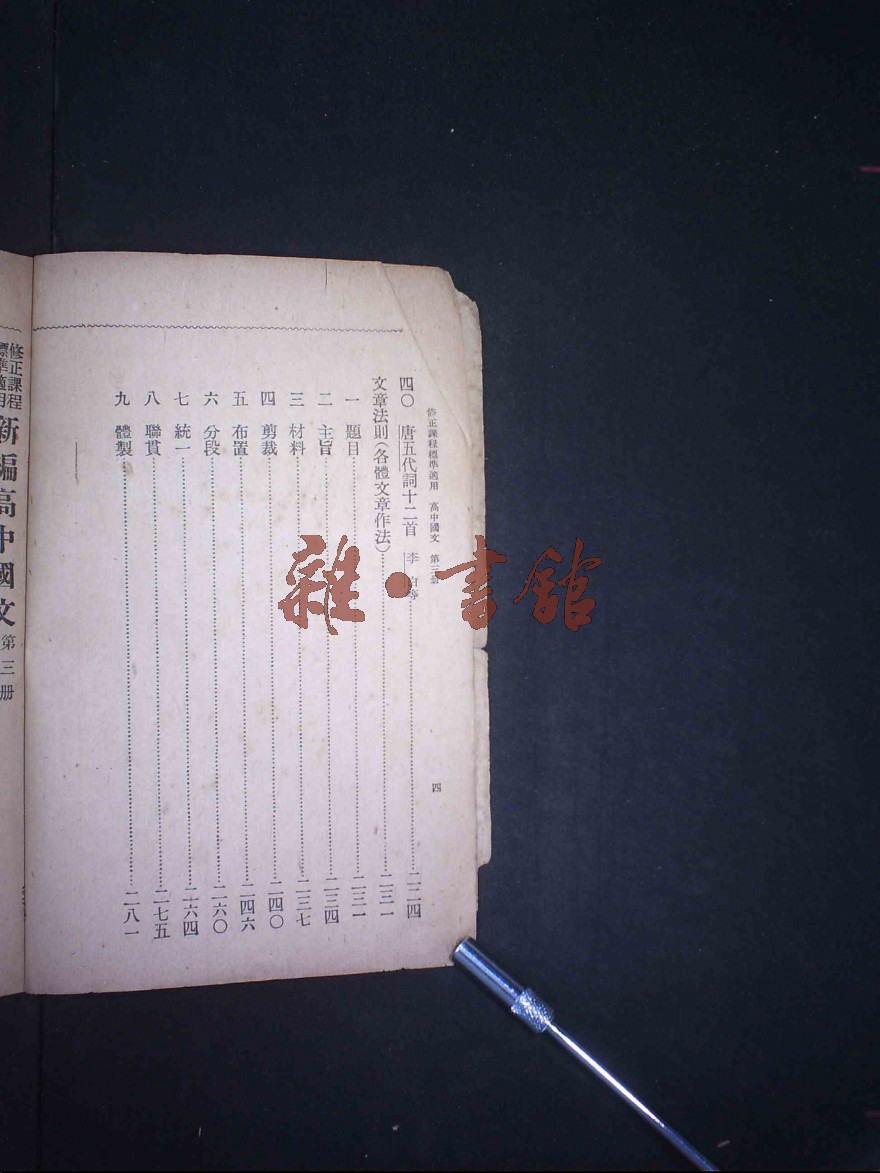 修正課程標準適用　高中國文　第三册
四
四〇　唐五代詞十二首　李白等……二二四
文章法則(各體文章作法)……二三一
一　題目……二三一
二　主旨……二三四
三　材料……二三七
四　剪裁……二四〇
五　布置……二四六
六　分段……二六〇
七　統一……二六四
八　聯貫……二七五
九　體製……二八一
修正課程
標準適用
新編高中國文
第三册
雜·書館